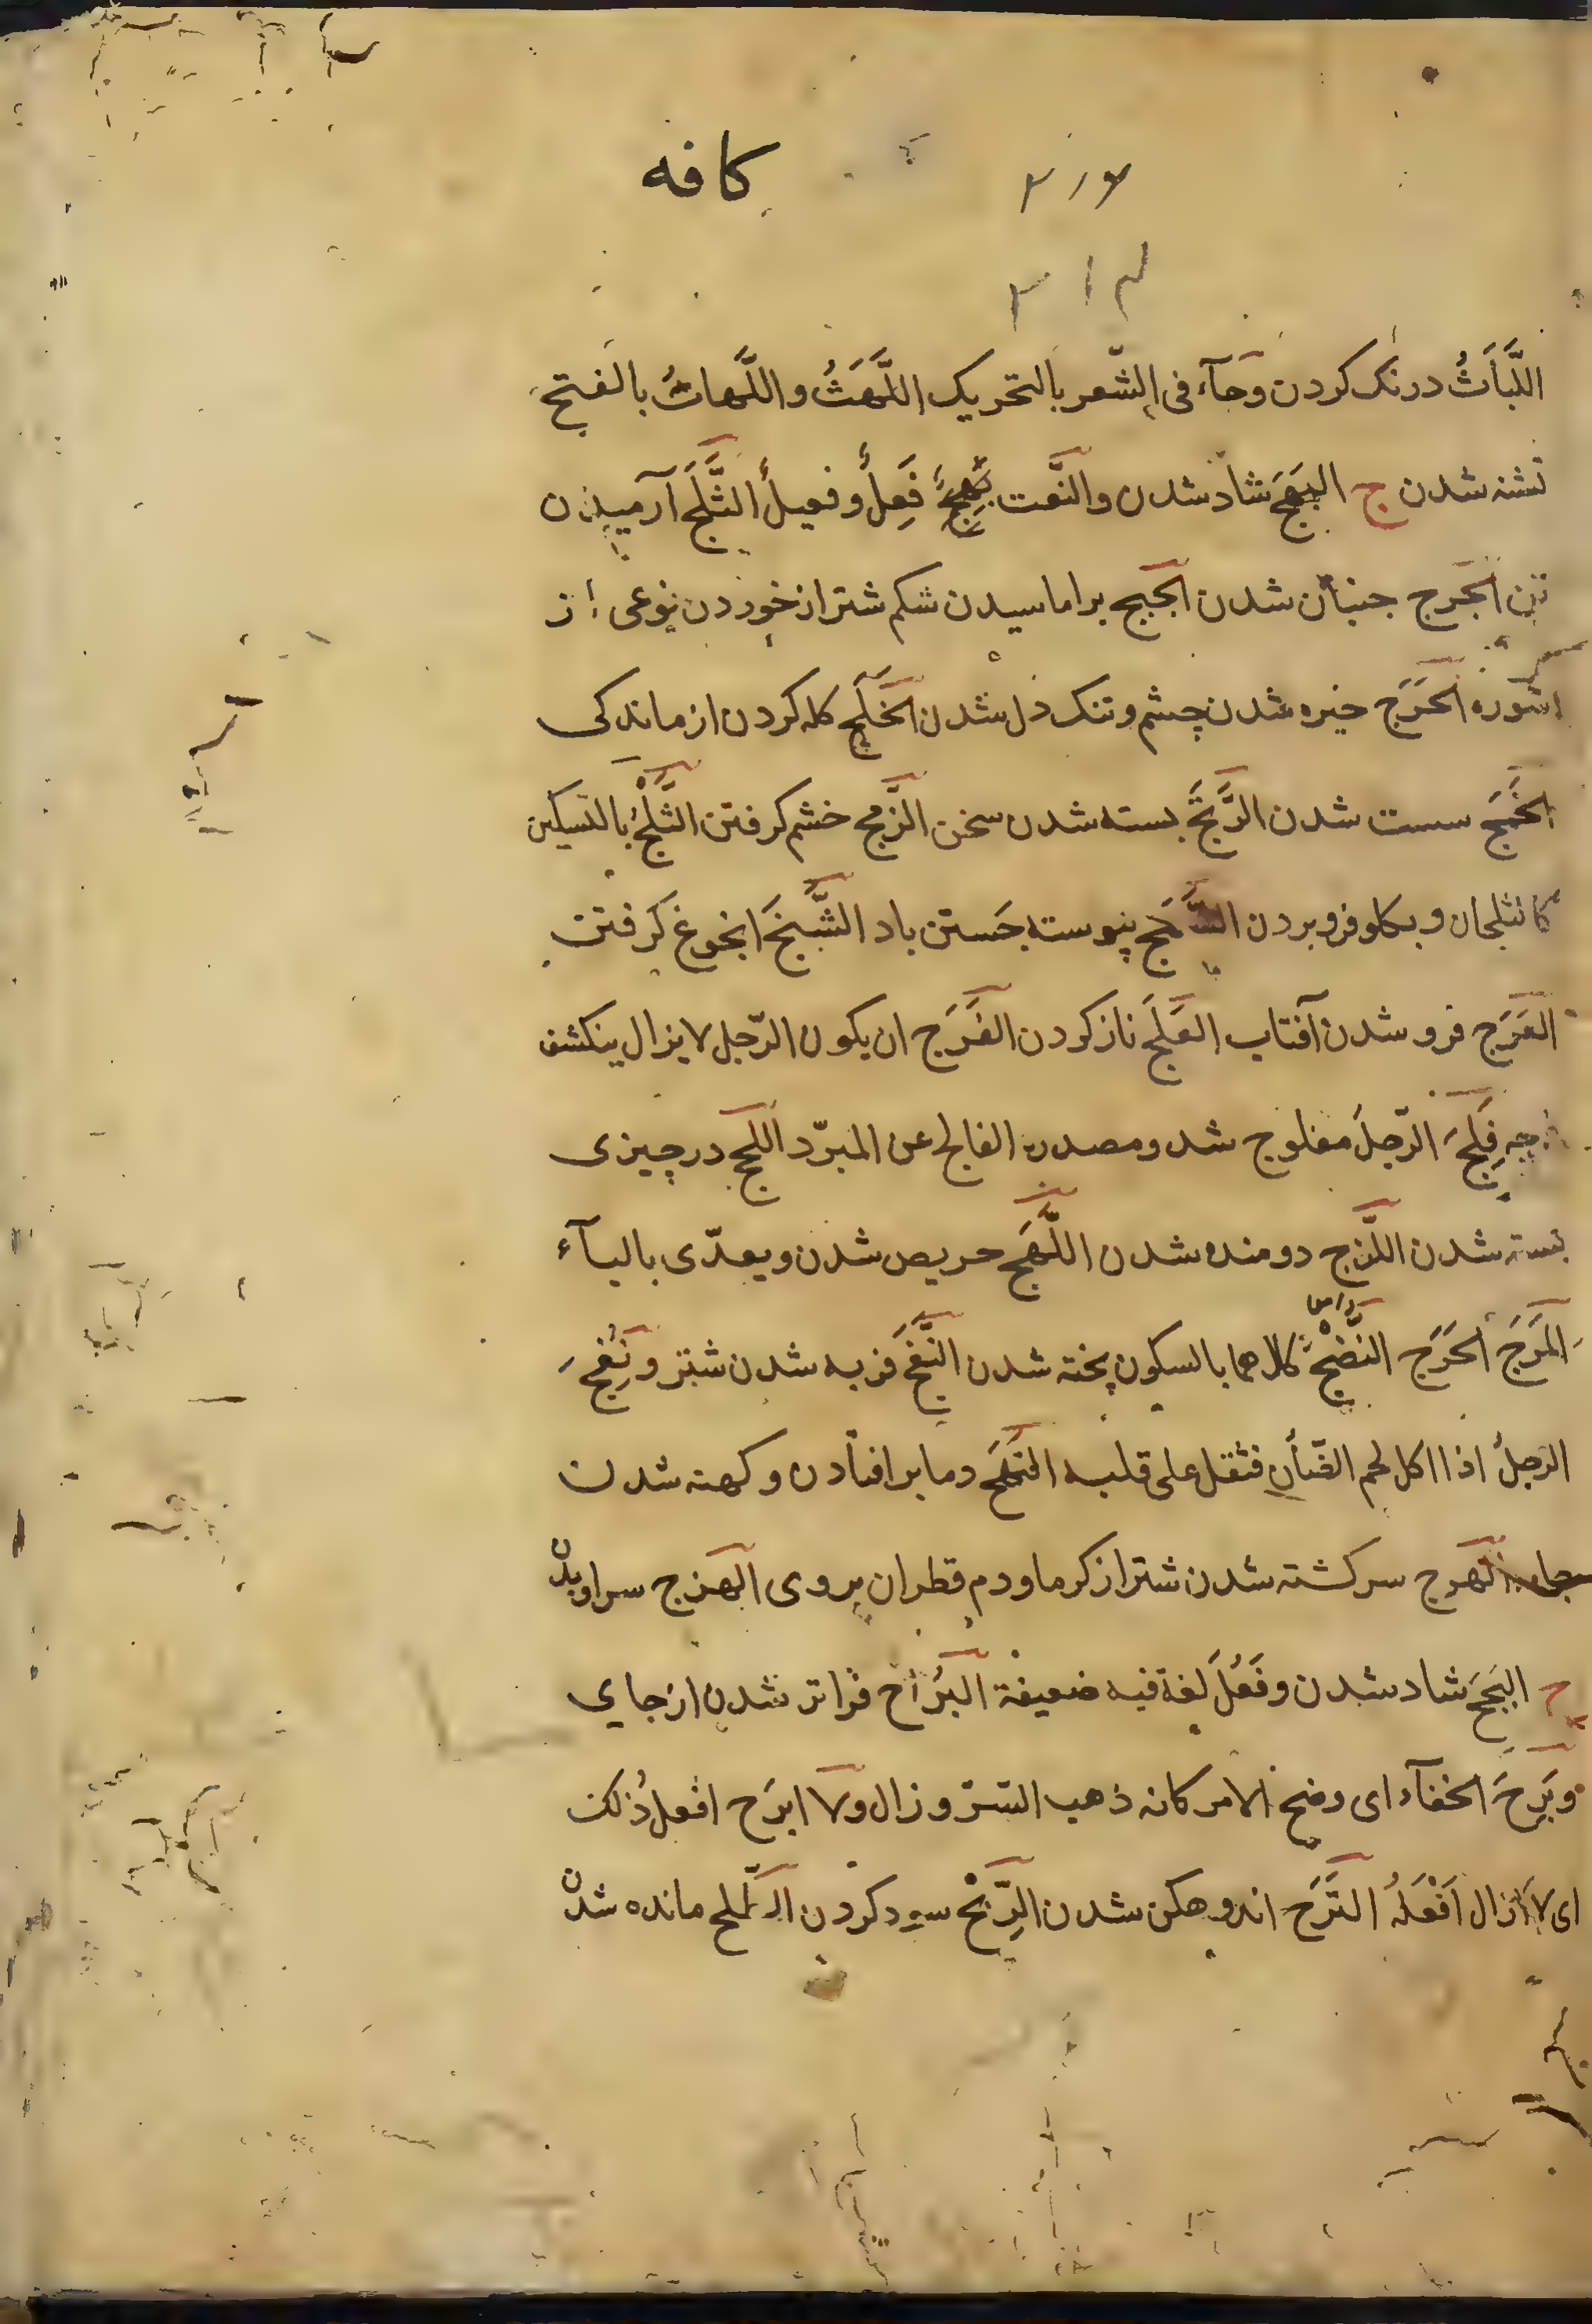 كافه
اللَّبَاثُ درنك كردن وجآء فى الشّعر بالتحريك اللَّهَثُ واللَّهاثُ بالفتح
تشنه شدن ج البَهَجَ شاد شدن والنَّعت بَهِجٌ فَعِلٌ وفعيلٌ الثَّلَجَ آرميدن
تن الجَرج جنبان شدن الحَبج براماسيدن شكم شتر از خوردن نوعى از
شوره الحَرَج خيره شدن چشم وتنك دل شدن الخَلَج كله كردن از ماندكى
الخَمَج سست شدن الرَّتَجَ بسته شدن سخن الزَّمج خشم كرفتن الثَّلْجُ بالتسكين
كالثلجان وبكلو فرو بردن السَّهَج پيوسته جَستن باد الشَّنَجَ انجوغ كرفتن
العَرَج فرو شدن آفتاب الغَلَجَ ناز كردن الفَرَج ان يكون الرّجل لا يزال ينكشف
فرجه فَلِجَ الرّجلُ مفلوج شد ومصدره الفالج عن المبرّد اللَّحج در چيزى
بسته شدن اللَّزج دومنده شدن اللَّهَج حريص شدن ويعدّى باليآء
المَرَجَ الحَرَج النَّضْجُ كلاهما بالسكون پخته شدن النَّعَجَ فربه شدن شتر ونَعِجَ
الرّجلُ اذا اكل لحم الضّأنِ فثقل على قلبه النَّهَجَ دما برافتادن وكهنه شدن
جامه الهَرج سركشته شدن شتر از كرما ودم قطران بروى الهَزج سراويدن
ح البَجَحَ شاد شدن وفَعَلَ لغة فيه ضعيفة البَرُاح فراتر شدن از جاي
وبَرِحَ الخفآء اى وضح الامر كانه ذهب السّترّ وزال ولا ابرَح افعل ذُلك
اى لا ازال اَفْعَلُه التَّرَحَ اندوهكن شدن الرِّبْح سود كردن الطَّلح مانده شدن